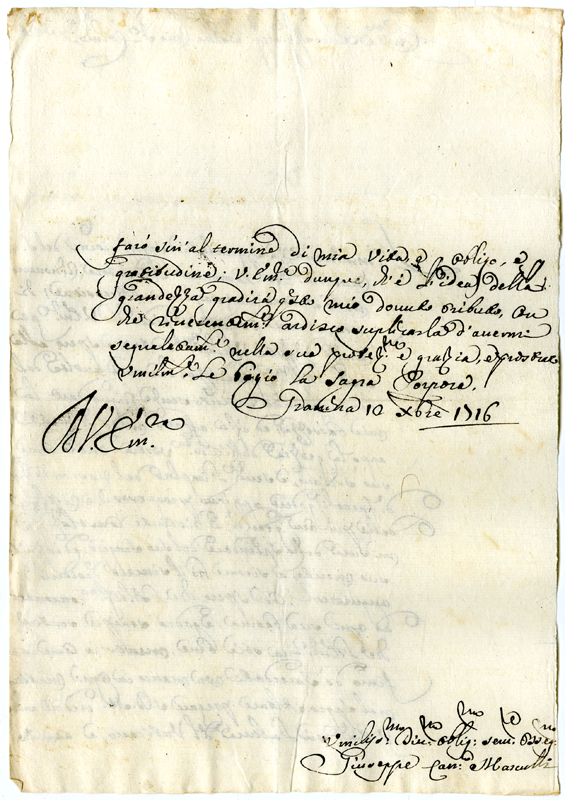 farò sin' al termine di mia vita p obligo, e
gratitudine: V. Em.ª dunque, ch'è l'idea della
grandezza gradirà q.to mio dovuto tributo, con
che riverentem.te ardisco suplicarla d'avermi
segnalatam.te nella sua protez.ne e grazia, e prostrato
umilm.te Le bagio la Sagra Porpora.
Gravina 10 Xbre 1716
D. V. Em.ra
Umiliss.mo Div.mo Oblig.mo Ser.re
Giuseppe Can.co Mascolli